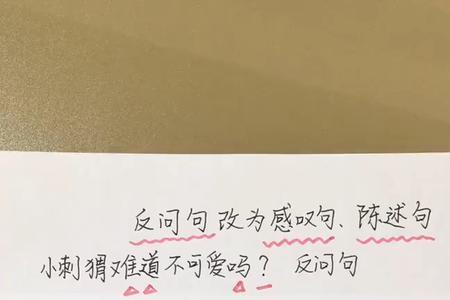 反问句改为感叹句、陈述句
小刺猬难道不可爱吗？ 反问句